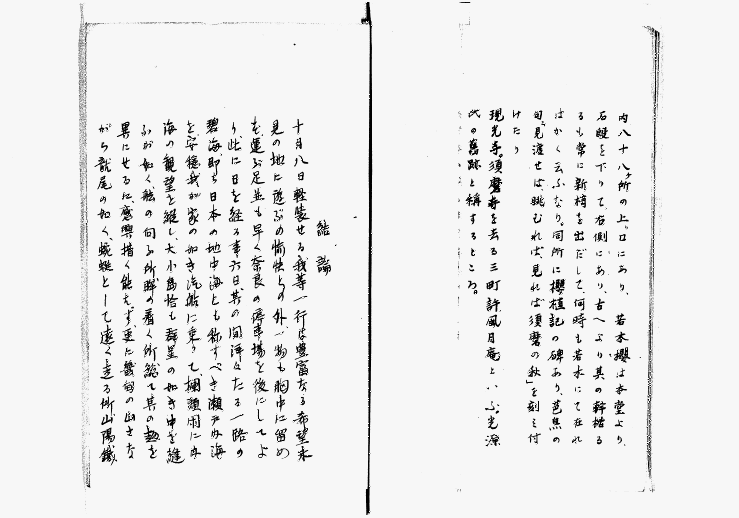 内八十八ヶ所の上り口にあり、若木櫻は本堂より
石磴を下りて右側にあり、古へより其の幹枯る
るも常に新梢を出だして、何時も若木にて在れ
はかく云ふなり。同所に櫻植記の碑あり、芭蕉の
句「見渡せば、眺むれば、見れば須磨の秋」を刻み付
けたり
現光寺。須磨寺を去る三町許風月庵といふ。光源
氏の舊跡と稱するところ。
結論
十月八日軽装せる我等一行は豊富なる希望未
見の地に遊ぶの愉快との外一物も胸中に留め
を運ぶ足並も早く奈良の停車場を後にしてよ
り、此に日を経る事六日、其の間洋々たる一路の
碧海即ち日本の地中海とも称すべき瀬戸内海
を安穏我が家の如き汽船に乗りて、
海の観望を縦し、大小島恰も群星の如き中を縫
ふが如く船の向ふ所眸の着く所総て其の を
異にせるに、感興措く能はず、更に
がら龍尾の如く、蜿蜒として遠く走る所山陽鐵